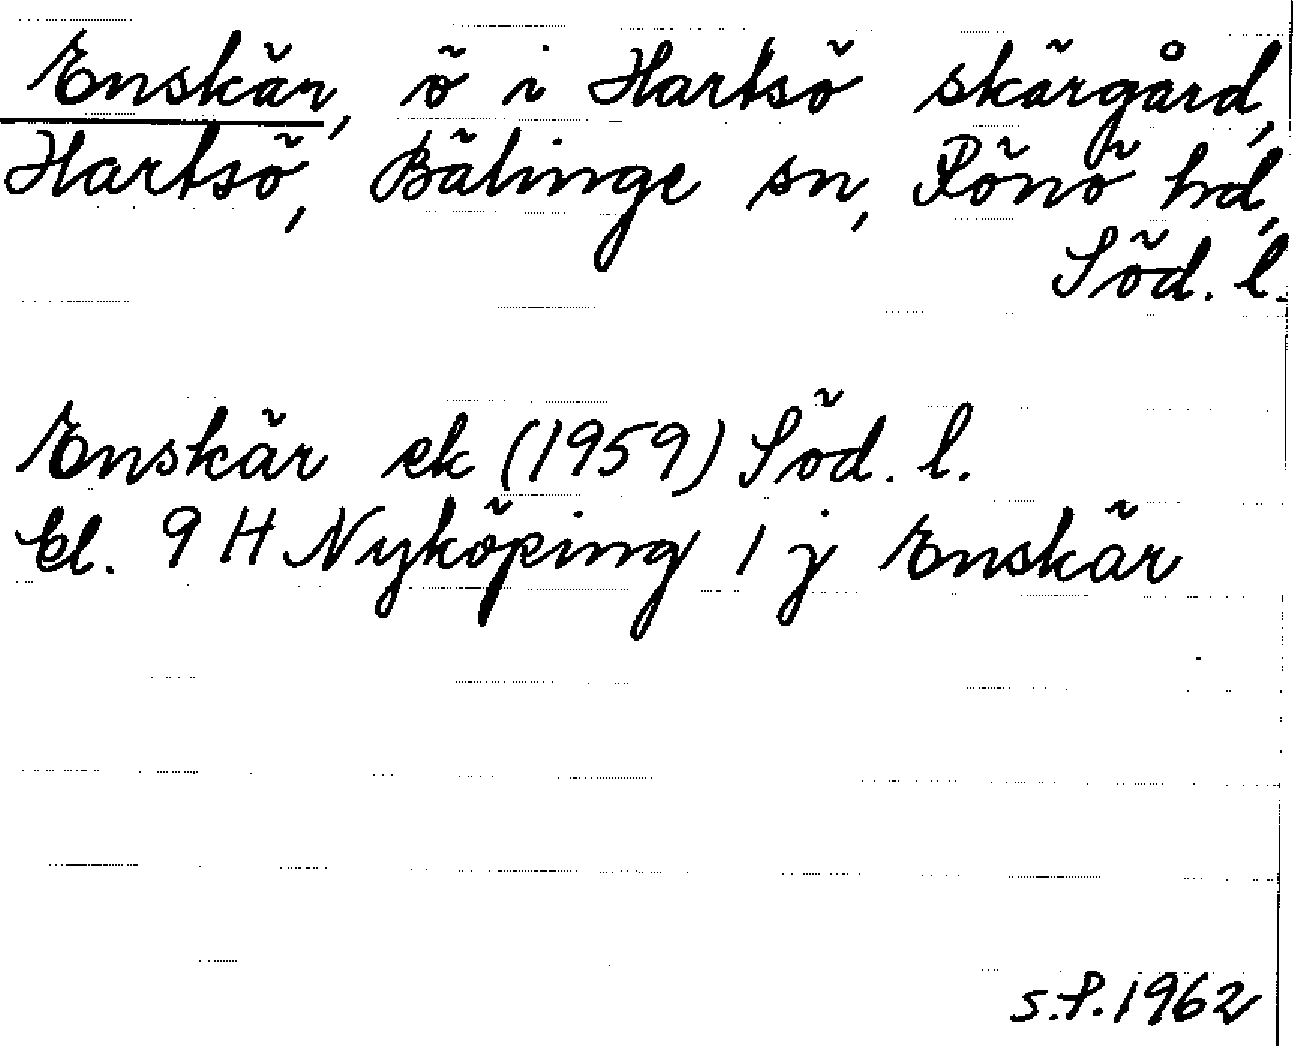 Enskär, ö i Hartsö skärgård,
Hartsö, Bälinge sn, Rönö hd,
Söd. l.
Enskär ek (1959) Söd. l.
bl. 9 H Nyköping 1 j Enskär
s.P.1962